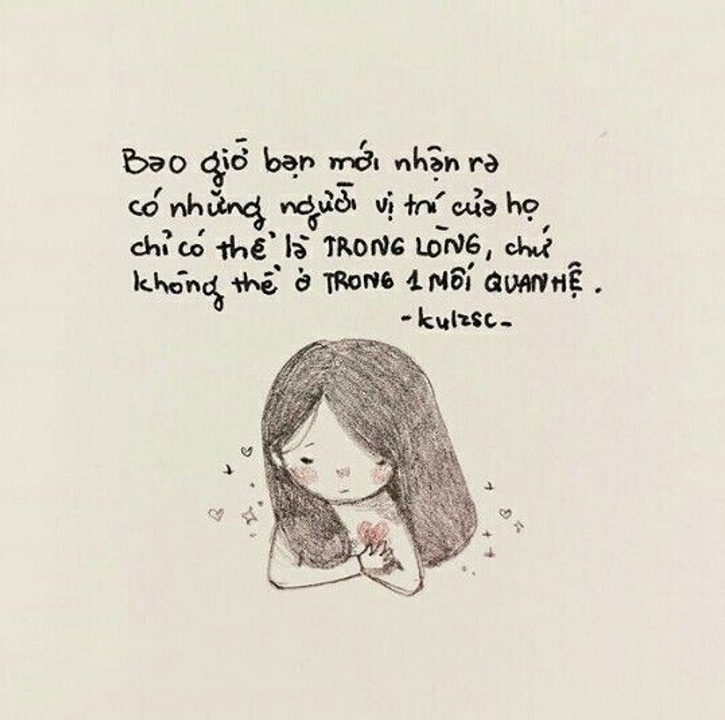 Bao giờ bạn mới nhận ra
có những người vị trí của họ
chỉ có thể là TRONG LÒNG, chứ
không thể ở TRONG 1 MỐI QUAN HỆ.
-kulzsc-